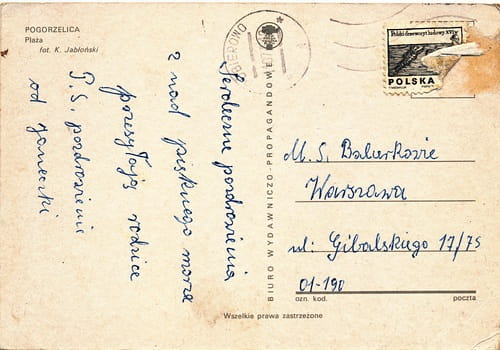 POGORZELICA
Plaża
fot. K. Jabłoński
Serdeczne pozdrowienia
z nad pięknego morza
przesyłają rodzice
P.S. pozdrowienia
od Janeczki
BIURO WYDAWNICZO-PROPAGANDOWE
Polski drzeworyt ludowy XVI
POLSKA
M. S.
Warszawa
ul: Gibalskiego 17/75
01-190
ozn. kod. poczta
Wszelkie prawa zastrzeżone